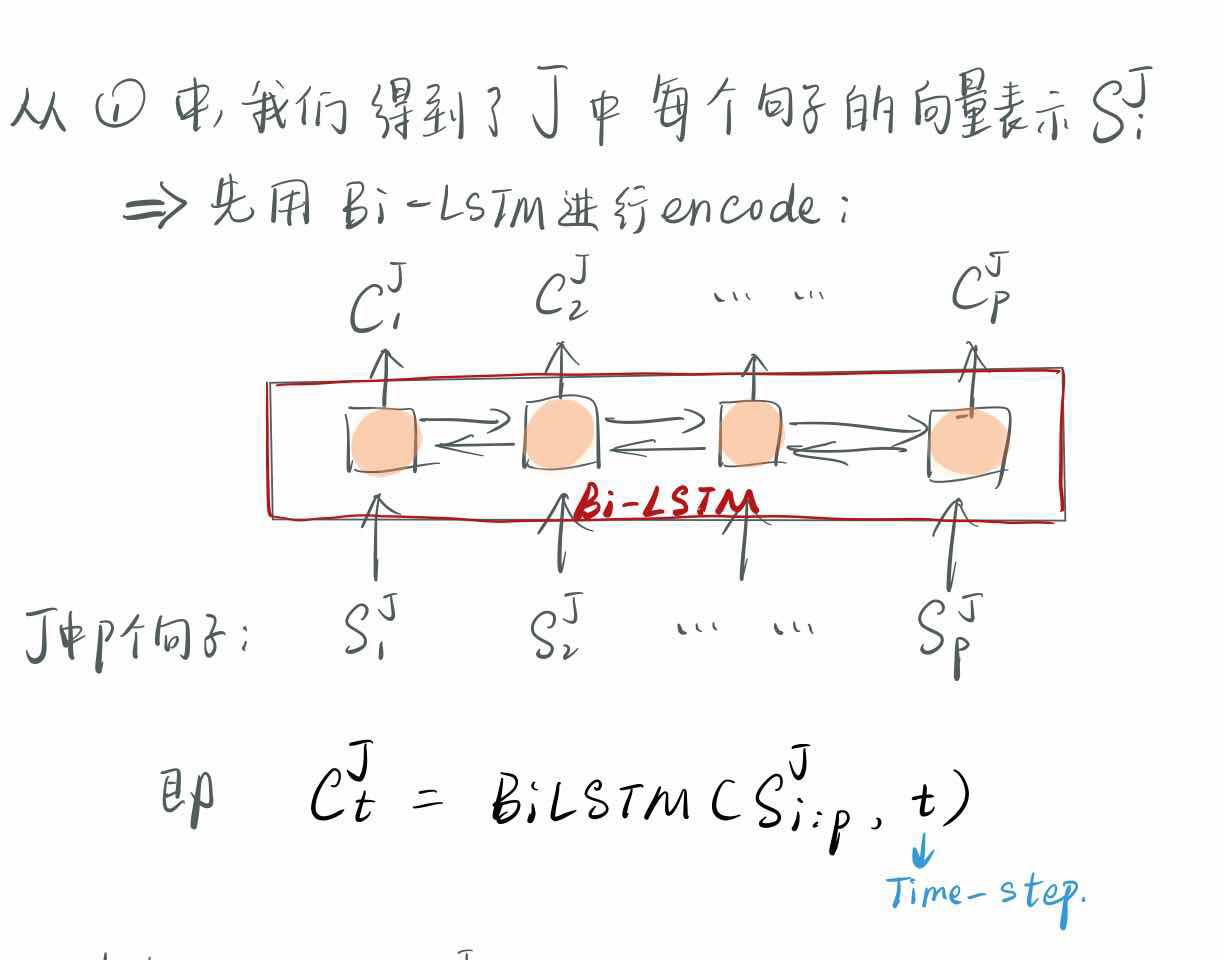 从 ① 中,我们得到了 J 中每个句子的向量表示 S_i^J
=> 先用 Bi-LSTM 进行 encode :
C_1^J C_2^J ... ... C_p^J
Bi-LSTM
J中p个句子: S_1^J S_2^J ... ... S_p^J
即 C_t^J = BiLSTM ( S_{i:p}^J , t )
Time-step.